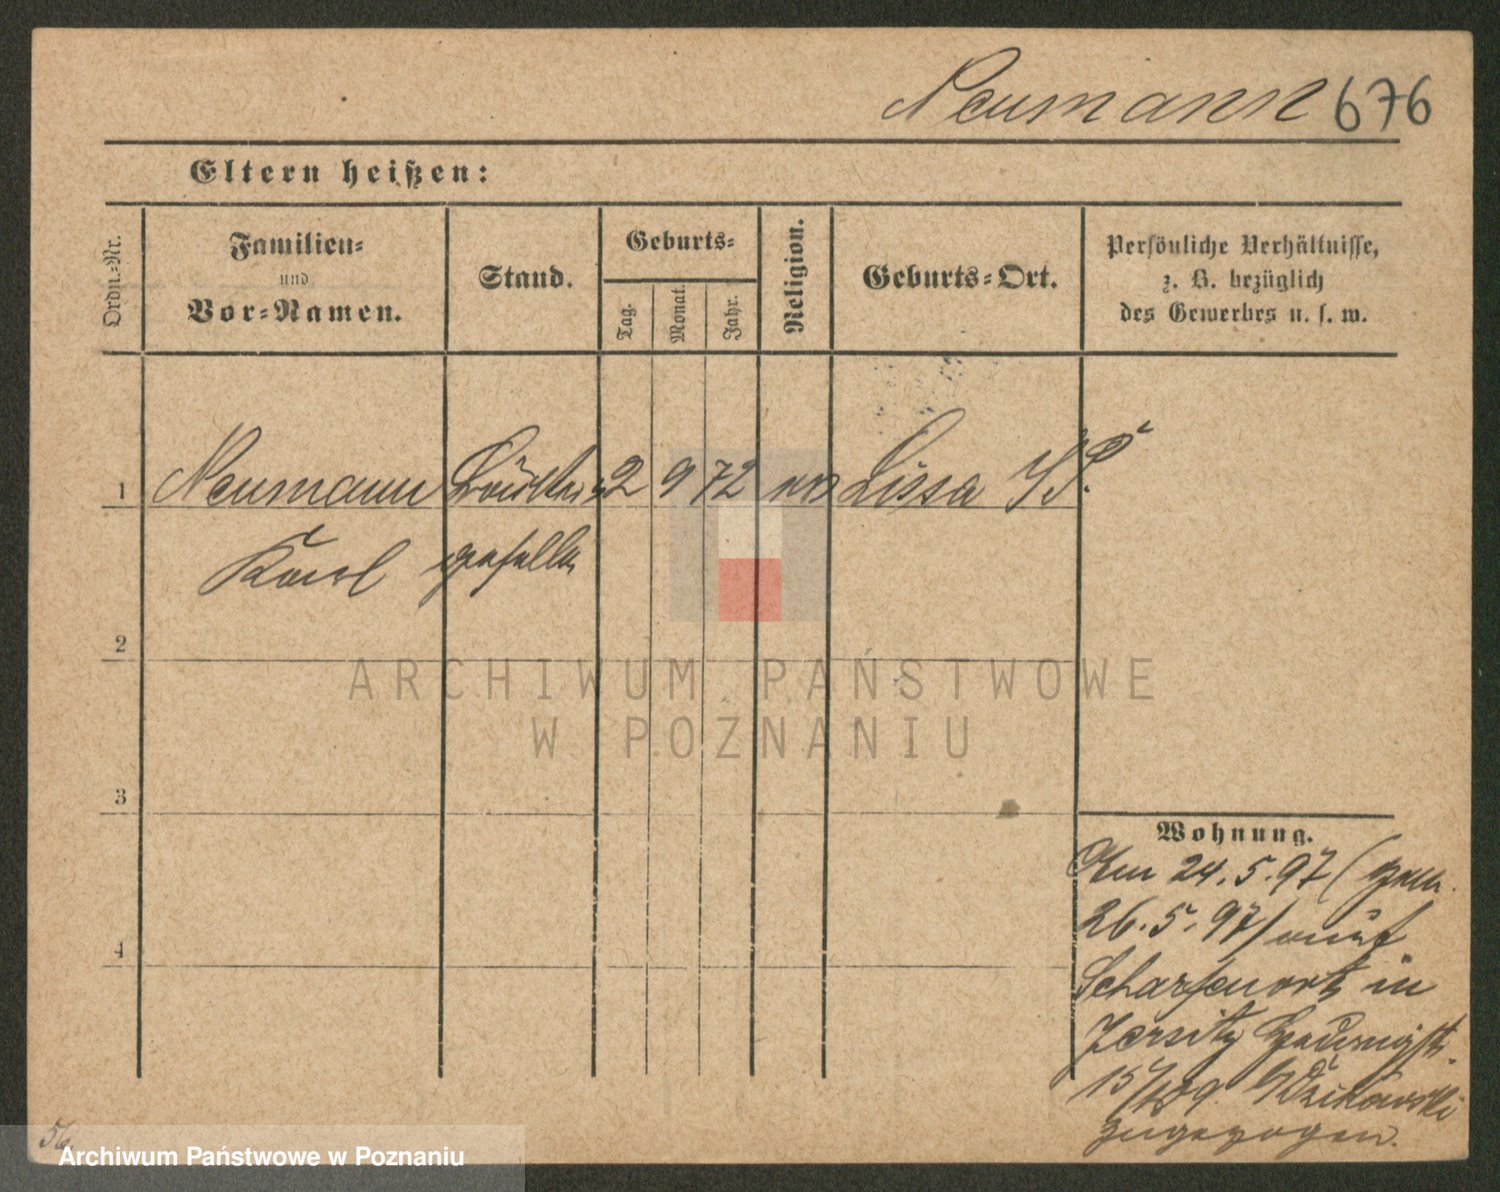 Neumann 676
Eltern heißen:
Ordn.-Nr.
Familien-
und
Vor-Namen.
Stand.
Geburts-
Tag.
Monat.
Jahr.
Religion.
Geburts-Ort.
Persönliche Verhältnisse,
z. B. bezüglich
des Gewerbes u. s. w.
1 Neumann 2 9 72 Lissa
Karl geselle
2
ARCHIWUM PAŃSTWOWE
W POZNANIU
3
Wohnung.
Am 24.5.97 (gem.
26.5.97) auf
4
Scharfenort in
Jersitz
15/ Dzikowski
zugezogen.
56.
Archiwum Państwowe w Poznaniu